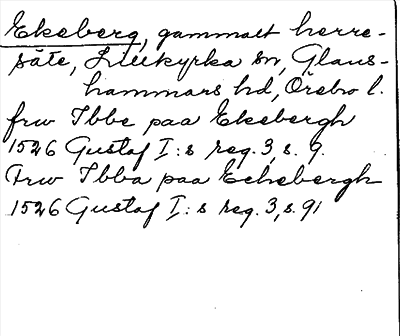 Ekeberg, gammalt herre-
säte, Lillkyrka sn, Glans-
hammars hd, Örebro l.
frw Ibbe paa Ekebergh
1526 Gustaf I:s reg. 3, s. 9.
Frw Ibba paa Echebergh
1526 Gustaf I:s reg. 3, s. 91